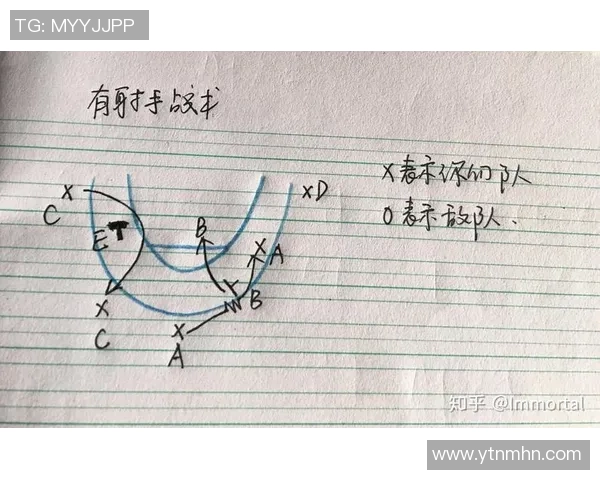 TG: MYYJJPP
有射手战术
X表示你的队
O表示敌队.
X
C
E
B
X
A
XD
X
C
B
X
A
知乎 @Immortal
www.ytnmhn.com